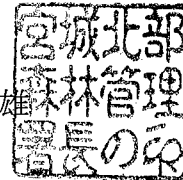 宮城北部
森林管理
署長の印
雄